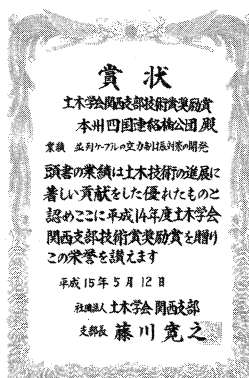 賞状
土木学会関西支部技術賞奨励賞
本州四国連絡橋公団 殿
業績 並列ケーブルの空力制振対策の開発
頭書の業績は土木技術の進展に
著しい貢献をした優れたものと
認めここに平成14年度土木学会
関西支部技術賞奨励賞を贈り
この栄誉を讃えます
平成15年5月12日
社団法人 土木学会 関西支部
支部長 藤川寛之